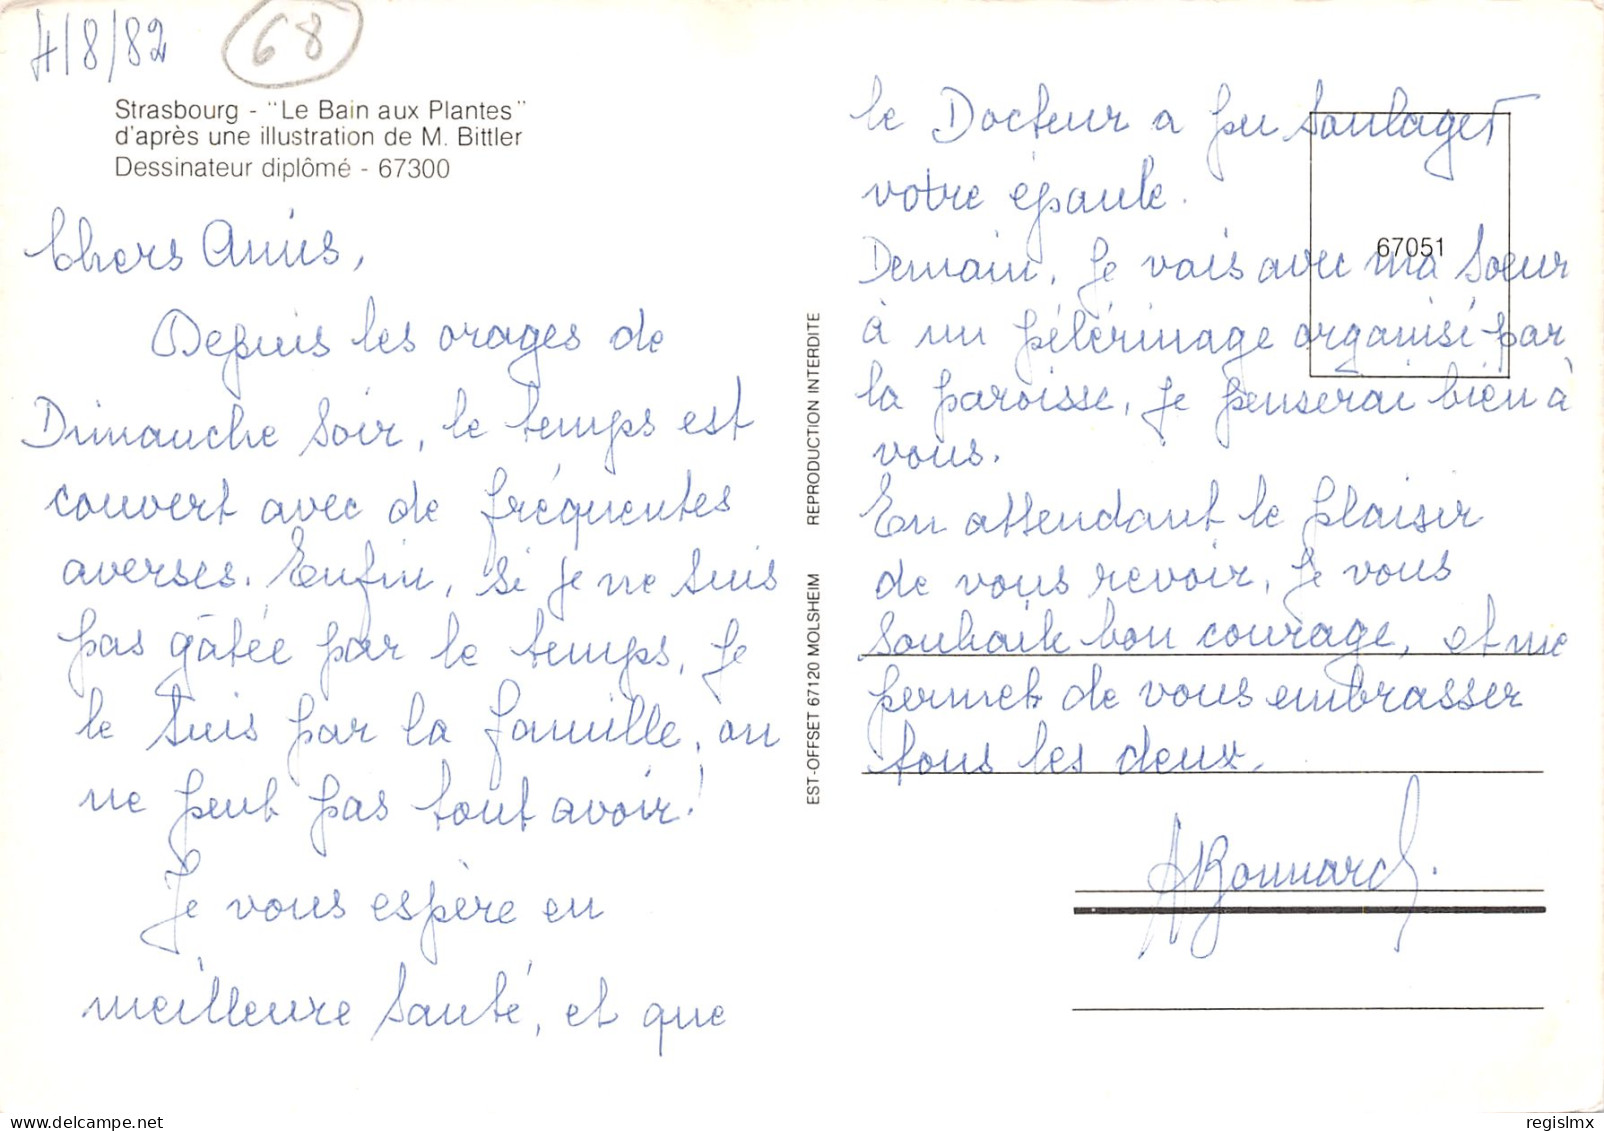 4/8/82
68
Strasbourg - "Le Bain aux Plantes"
d'après une illustration de M. Bittler
Dessinateur diplômé - 67300
Chers Amis,
Depuis les orages de
Dimanche soir, le temps est
couvert avec de fréquentes
averses. Enfin, si je ne suis
pas gâtée par le temps, je
le suis par la famille, on
ne peut pas tout avoir!
Je vous espère en
meilleure santé, et que
EST-OFFSET 67120 MOLSHEIM REPRODUCTION INTERDITE
le Docteur a pu soulager
votre épaule.
67051
Demain, je vais avec ma soeur
à un pélérinage organisé par
la paroisse, je penserai bien à
vous.
En attendant le plaisir
de vous revoir, je vous
souhaite bon courage, et me
permets de vous embrasser
tous les deux.
ABonnard.
regislmx